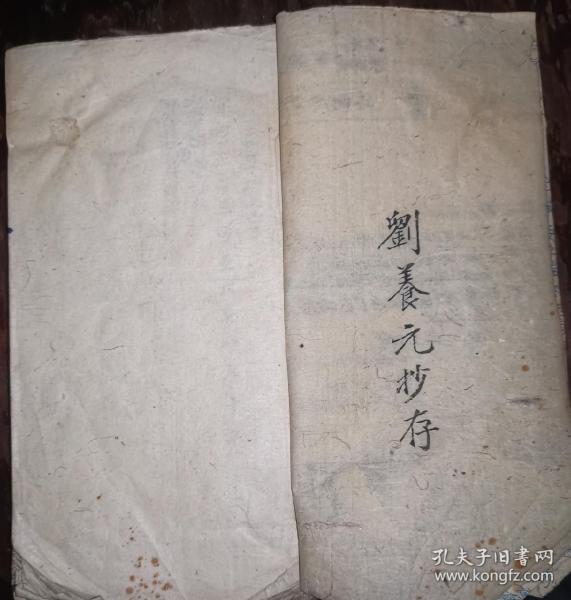 劉養元抄存
孔夫子旧書网
www.kongfz.com